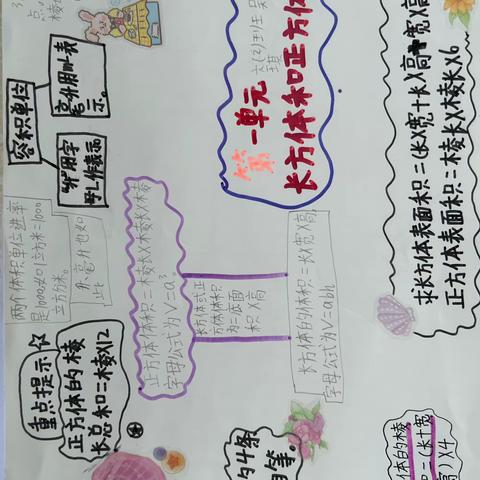 第一单元
长方体和正方体
六(2)班
求长方体表面积=(长X宽十长X高十宽X高
正方体表面积=棱长X棱长X6
容积单位
毫升用mL表
示。
"升"用字
母L作表示
两个体积单位进率
是1000如1立方米=1000
立方分米。
升、毫升也如
此
正方体体积=棱长X棱长X棱长
字母公式为V=a³
长方体或正
方体体积
为=底面
积X高
长方体的体积=长X宽X高
字母公式为V=abh
重点提示
正方体的棱
长总和=棱X12
的4条
等
体的棱
和=(长十宽
高)X4